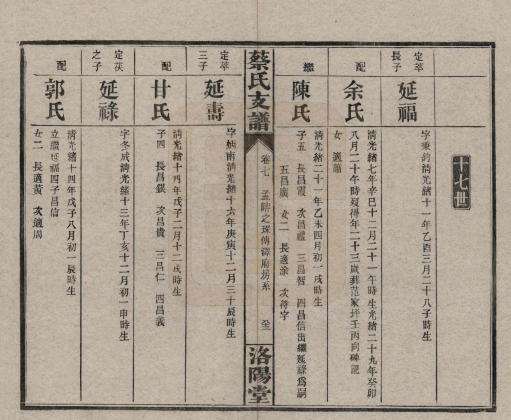 十七世
定萃長子
延福
字秉鈞清光緒十一年乙酉三月二十八子時生
配
余氏
清光緒七年辛巳十二月二十一午時生光緒二十九年癸卯
八月二十午時歿得年二十三歲葬范家坪壬丙向碑記
女 適蕭
繼
陳氏
清光緒二十一年乙未四月初一戌時生
子五 長昌霞 次昌禮 三昌智 四昌信出繼延祿為嗣
五昌廣 女二 長適涂 次待字
蔡氏支譜
卷七
孟
之
傳
房系
洛陽堂
定萃三子
延壽
字 南清光緒十六年庚寅十二月三十辰時生
配
甘氏
清光緒十四年戊子二月十二戌時生
子四 長昌銀 次昌貴 三昌仁 四昌義
定茯之子
延祿
字冬成清光緒十三年丁亥十二月初一申時生
配
郭氏
清光緒十四年戊子八月初一辰時生
立繼延福四子昌信
女二 長適黃 次適周